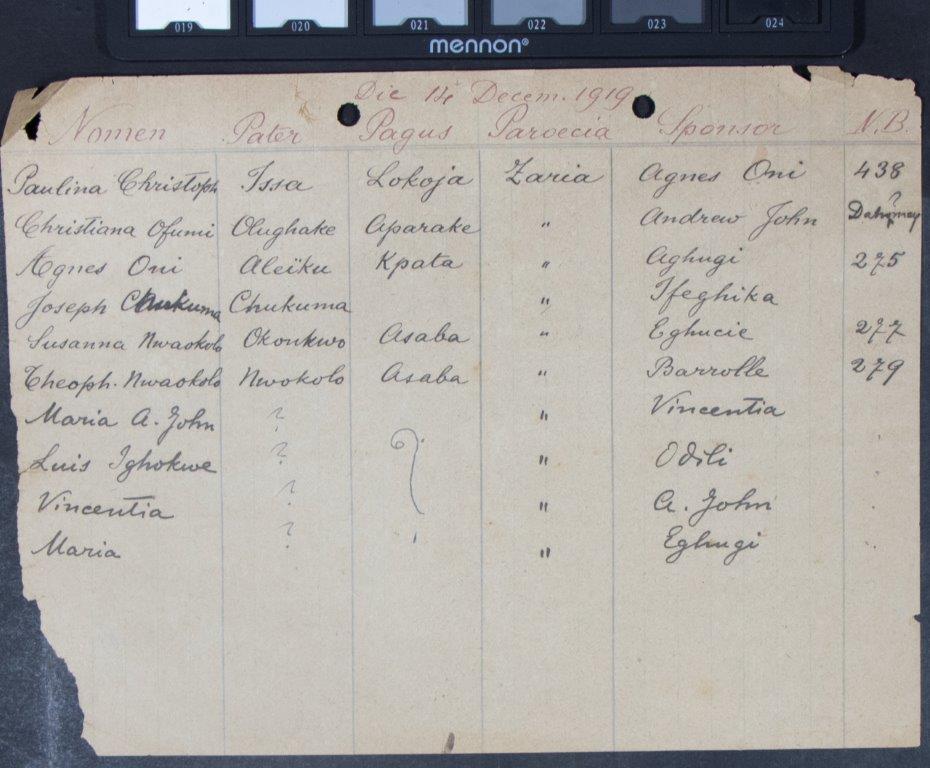 019 020 021 022 023 024
mennon®
Die 14 Decem. 1919
Nomen Pater Pagus Paroecia Sponsor N.B.
Paulina Christoph Issa Lokoja Zaria Agnes Oni 438
Christiana Ofumi Olughake Aparake " Andrew John Dahomey ?
Agnes Oni Aleïku Kpata " Aghugi 275
Joseph Chukuma Chukuma " Ifeghika
Susanna Nwaokolo Okonkwo Asaba " Eghucie 277
Theoph. Nwaokolo Nwokolo Asaba " Barrolle 279
Maria A. John ? ? " Vincentia
Luis Ighokwe ? " Odili
Vincentia ? " A. John
Maria ? " Eghugi